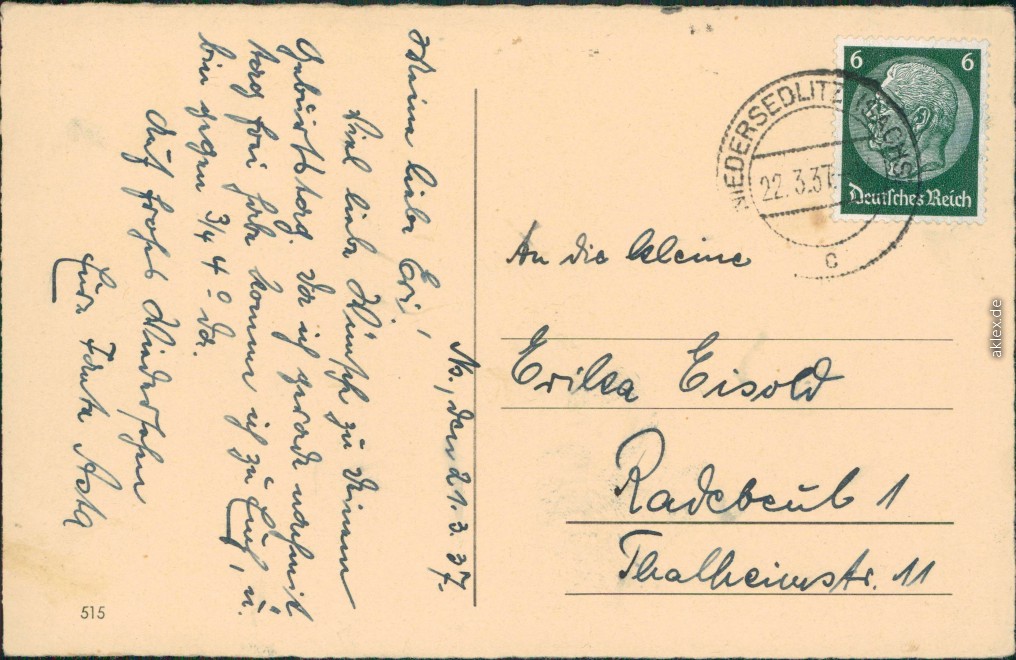 Ns., den 21.3.37.
Meine liebe Eri!
Viel liebe Wünsche zu Deinem
Geburtstag. Da ich gerade nachmit
tag frei habe komme ich zu Euch, u.
bin gegen 3/4 4° da.
Auf frohes Wiedersehn
Eure Tante Asta
515
NIEDERSEDLITZ (SACHS)
22.3.37
c
6 6
Deutsches Reich
An die kleine
Erika Eisold
Radebeul 1
Thalheimstr. 11
aklex.de